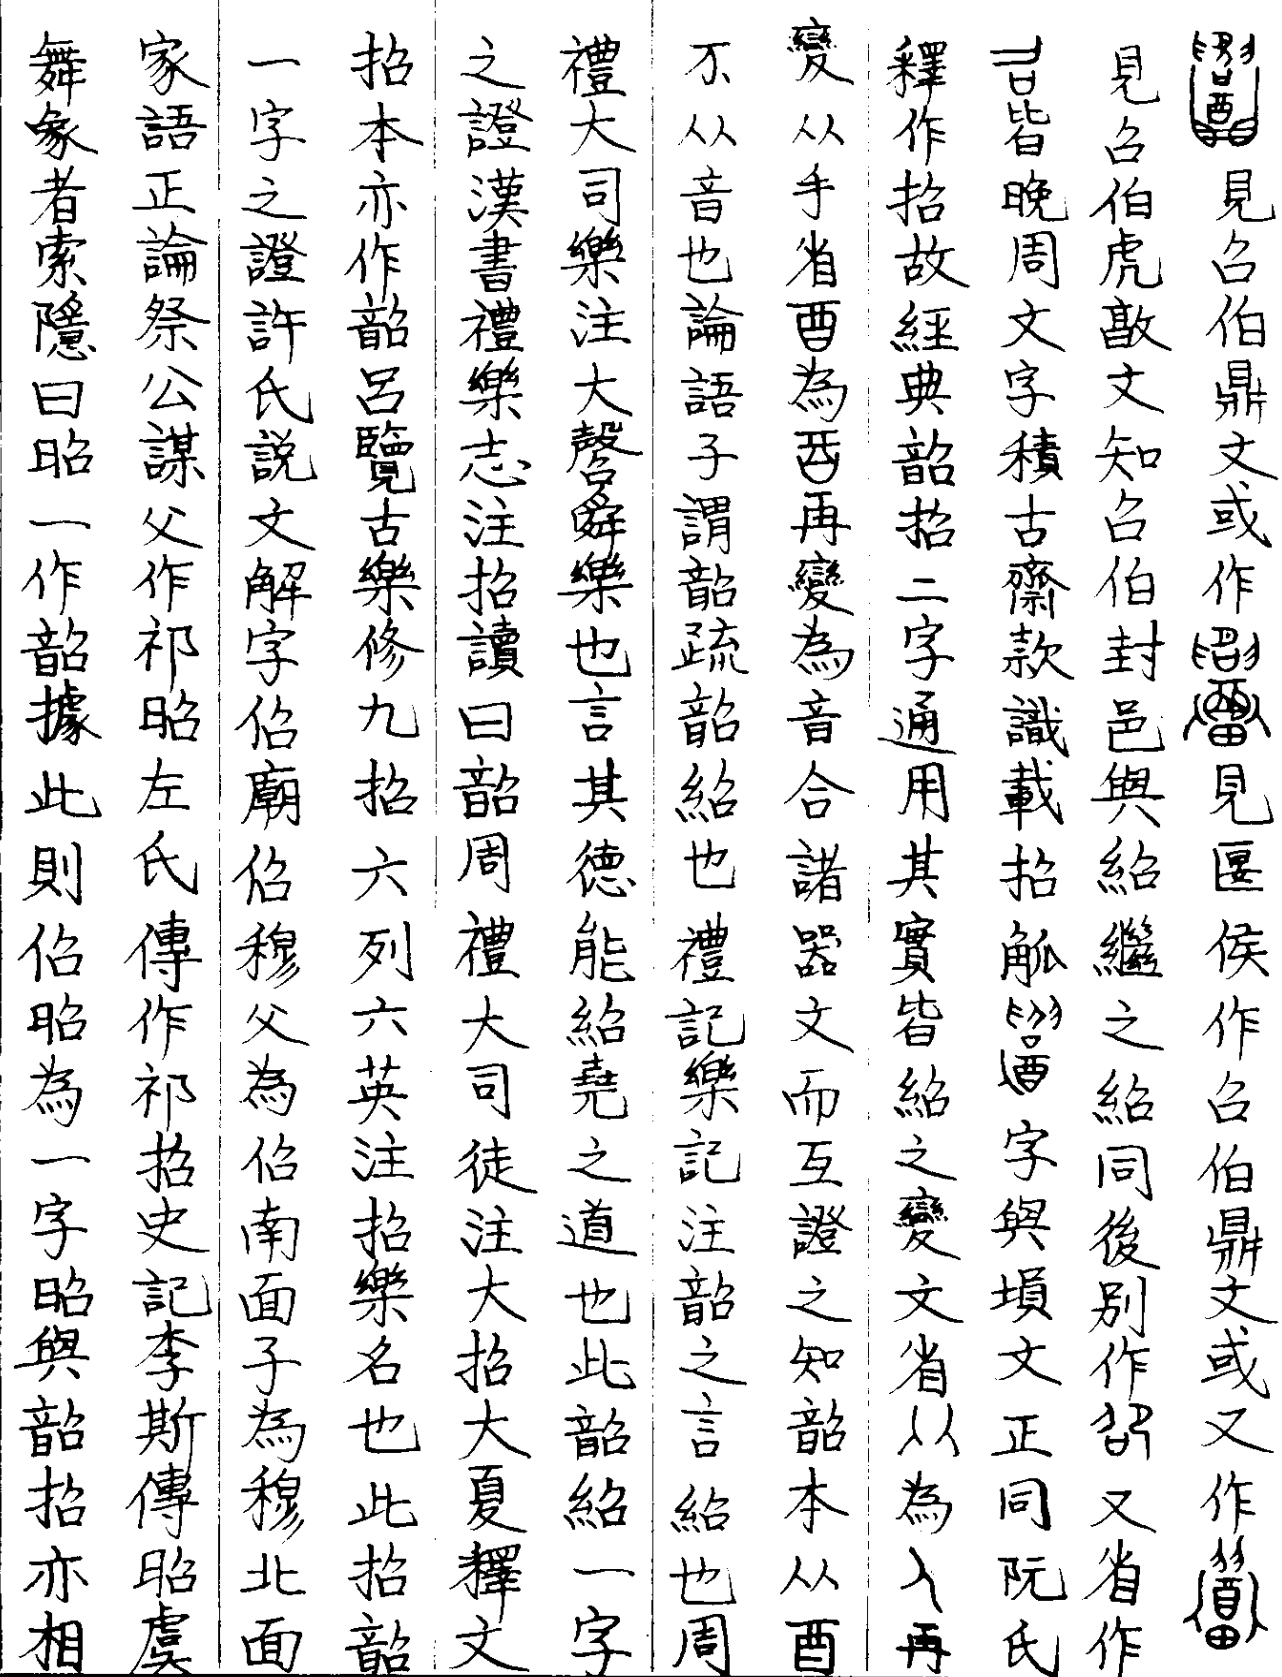 見召伯鼎文或作見匽侯作召伯鼎文或又作
見召伯虎敦文知召伯封邑與紹繼之紹同後別作又省作
皆晚周文字積古齋款識載招觚字與塤文正同阮氏
釋作招故經典韶招二字通用其實皆紹之變文省从為入再
變从手省酉為再變為音合諸器文而互證之知韶本从酉
不从音也論語子謂韶疏韶紹也禮記樂記注韶之言紹也周
禮大司樂注大磬舜樂也言其德能紹堯之道也此韶紹一字
之證漢書禮樂志注招讀曰韶周禮大司徒注大招大夏釋文
招本亦作韶呂覽古樂修九招六列六英注招樂名也此招韶
一字之證許氏説文解字佋廟佋穆父為佋南面子為穆北面
家語正論祭公謀父作祁昭左氏傳作祁招史記李斯傳昭虞
舞象者索隱曰昭一作韶據此則佋昭為一字昭與韶招亦相